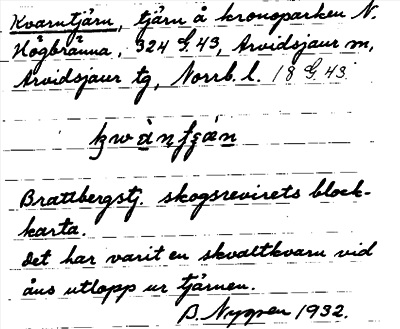 Kvarntjärn, tjärn å kronoparken N.
Högbränna, 324 G.43, Arvidsjaur sn,
Arvidsjaur tg, Norrb. l. 18 G.43.
Brattbergstj. skogsrevirets block-
karta.
Det har varit en skvaltkvarn vid
åns utlopp ur tjärnen.
B. Nygren 1932.